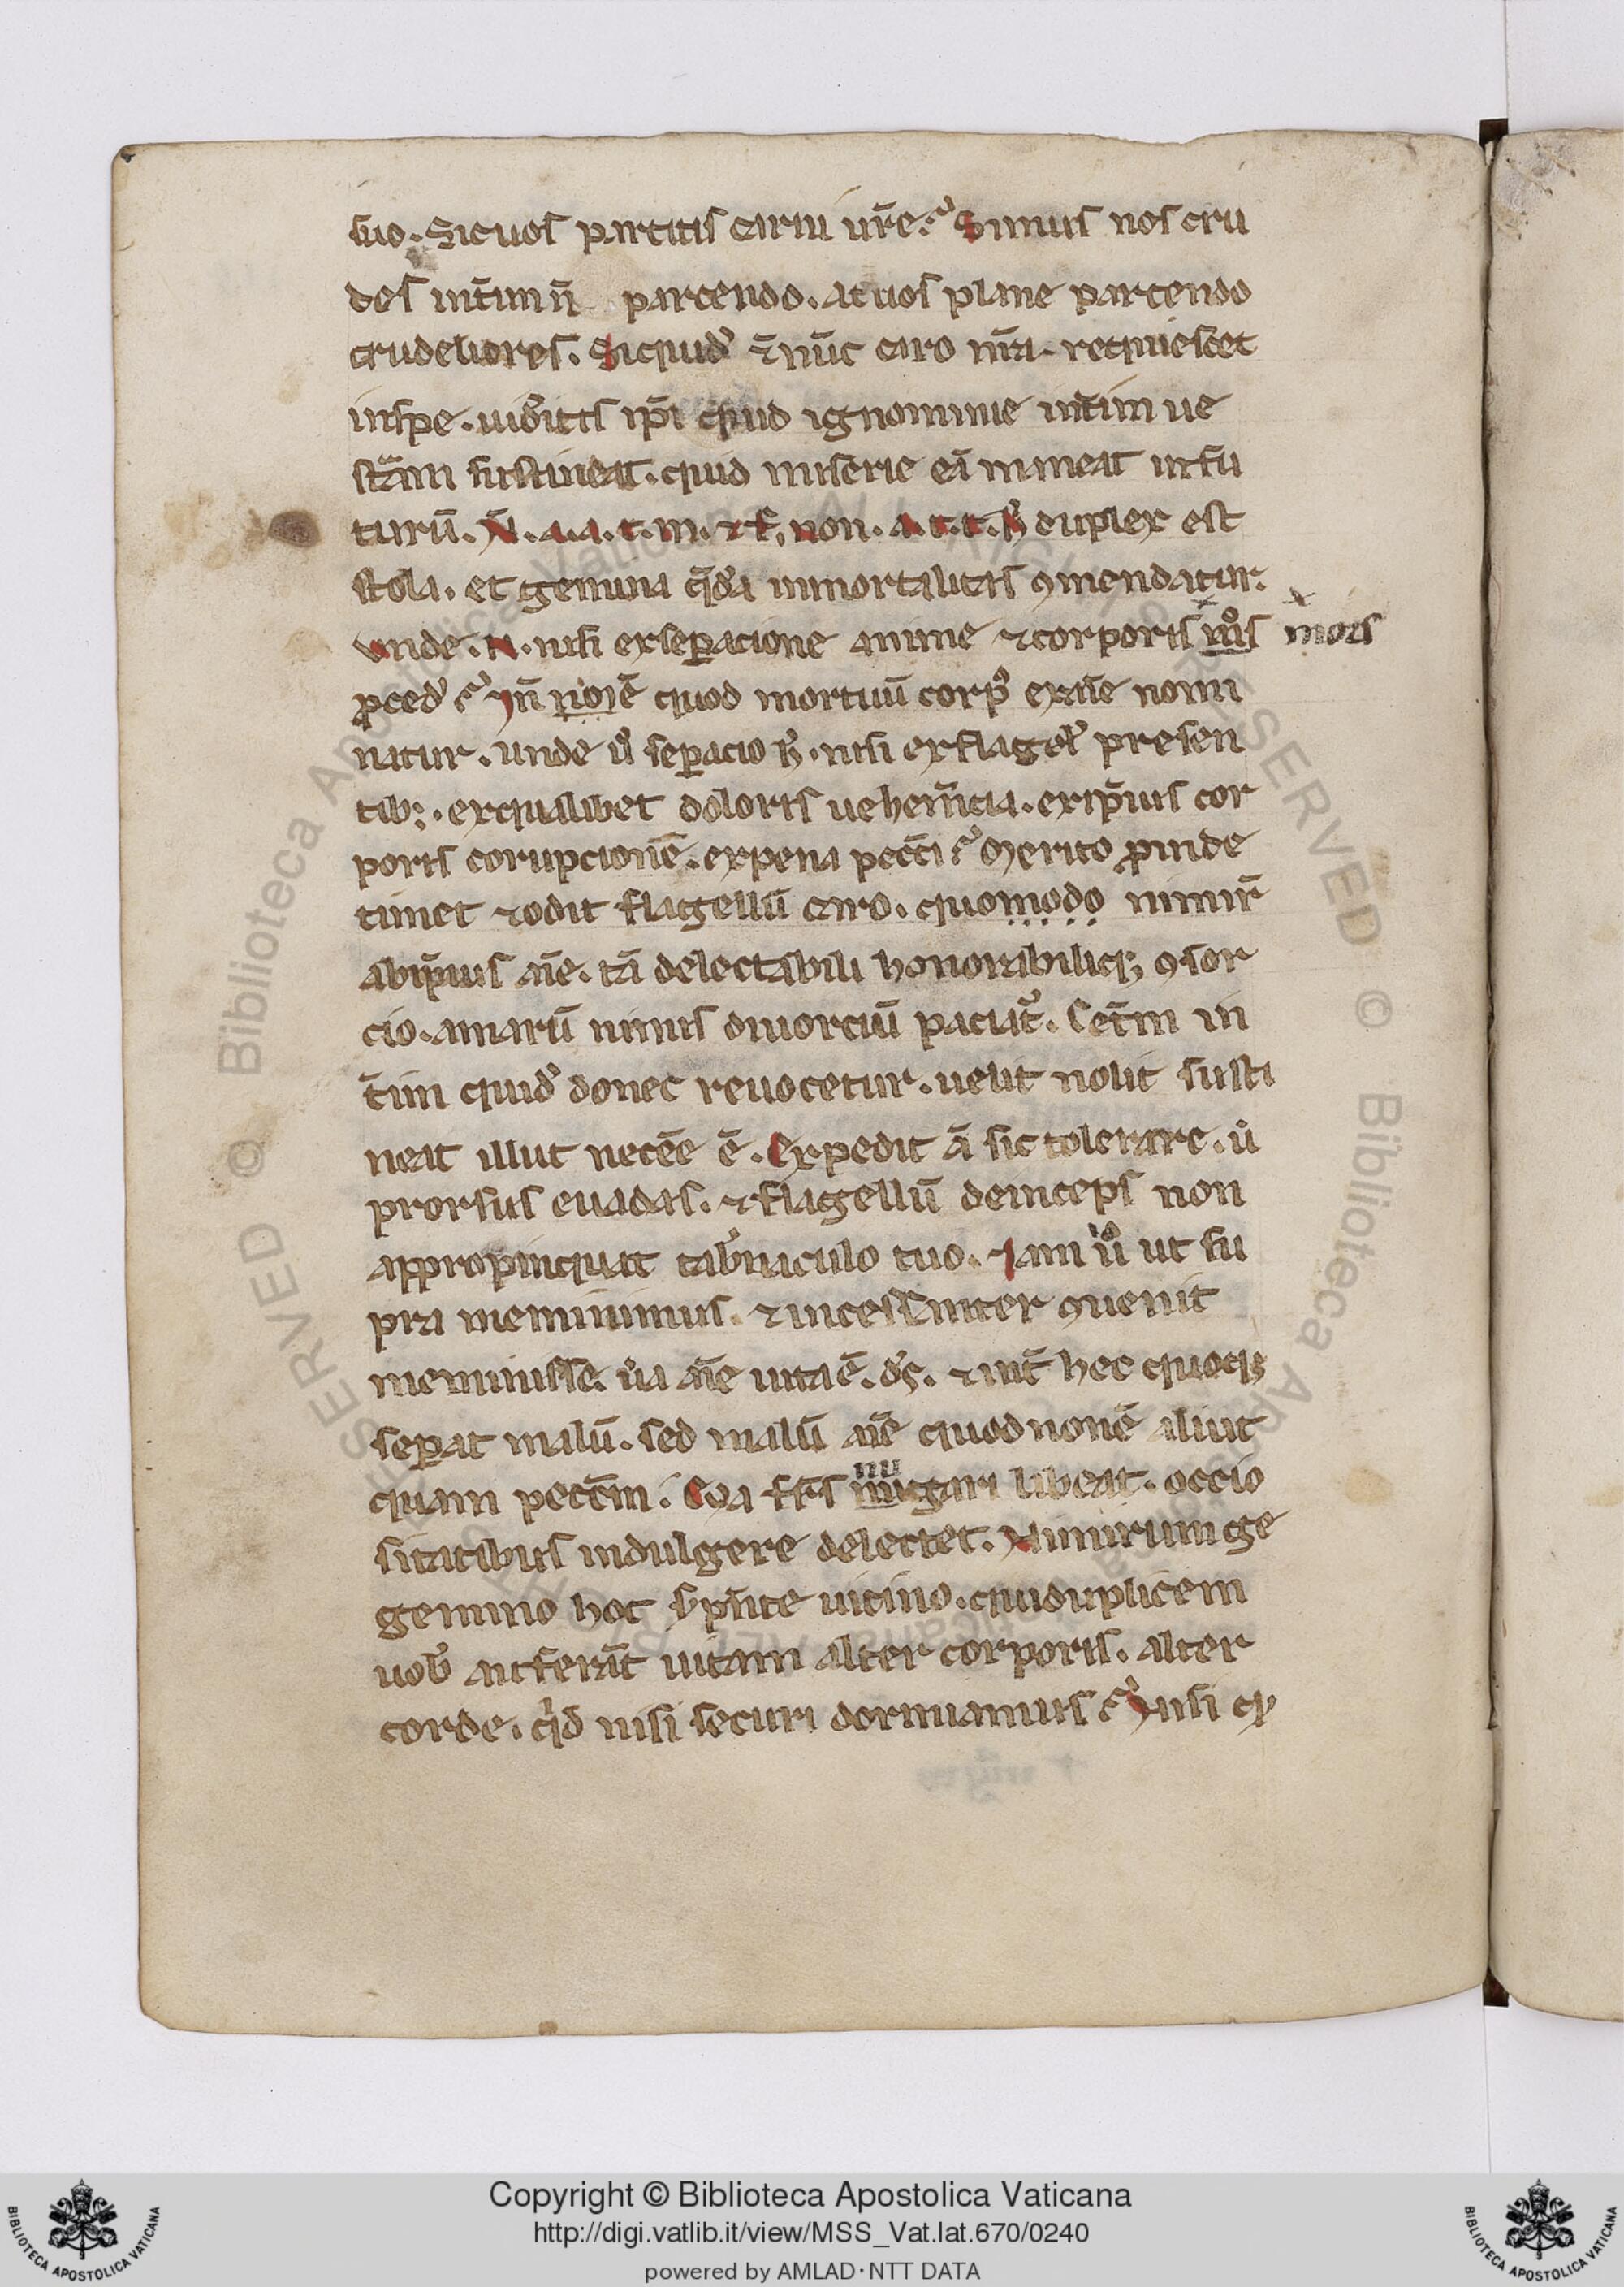 suo. Sic uos parcitis carni ur̄e. Simus nos cru
deles int̄im n̄ parcendo. at uos plane parcendo
crudeliores. Siquid᷎ ⁊ nūc caro nr̄a requiescet
in spe. uid᷎itis ip̄i quid ignominie int̄im ue
str̄am sustineat. quid miserie eā maneat in fu
turū. N̄. a. a. t. m. ⁊ f, non. a. t. t. S᷎ duplex est
stola. et gemina q̄d᷎a inmortalitas ꝯmendatur.
unde. N. nisi ex seꝑacione anime ⁊ corporis mo᷎s mors
ꝓced᷎ Jn̄ nōıē quod mortuū corp᷎ exāīe nomi
natur. unde u᷎ seꝑacio h᷎. nisi ex flagell᷎ presen
tibꝫ. ex qualibet doloris uehem̄cia. ex ip̄ius cor
poris corupcionē. ex pena pecc̄i Merito ꝓinde
timet ⁊ odit flagellū caro. quomodo nimir̄
ab ip̄ius āīe. tā delectabili honorabiliqꝫ ꝯsor
cio. amarū nimis diuorciū paciat᷎. Cet̄m in
t̄im quid᷎ donec reuocetur. uelit nolit susti
neat illut necēe ē. Expedit ā sic tolerare. u᷎
prorsus euadas. ⁊ flagellū deinceps non
appropinquat tab᷎naculo tuo. Jam u᷎ ut su
pra meminimus. ⁊ incessanter ꝯuenit
meminisse. u᷎a āīe uita ē. d᷎s. ⁊ int̄ hec quoqꝫ
seꝑat malū. sed malū āīe quod non ē aliut
quam pecc̄m. Ea fr̄s nugari libeat. occio
nu
sitatibus indulgere delectet. Nimirum ge
gemino hoc s᷎pn̄te uicino. qui duplicem
uob᷎ auferāt uitam alter corporis. alter
corde. q᷎d nisi securi dormiamus Nisi qꝫ
Copyright © Biblioteca Apostolica Vaticana
http://digi.vatlib.it/view/MSS_Vat.lat.670/0240
powered by AMLAD·NTT DATA
BIBLIOTECA APOSTOLICA VATICANA
BIBLIOTECA APOSTOLICA VATICANA